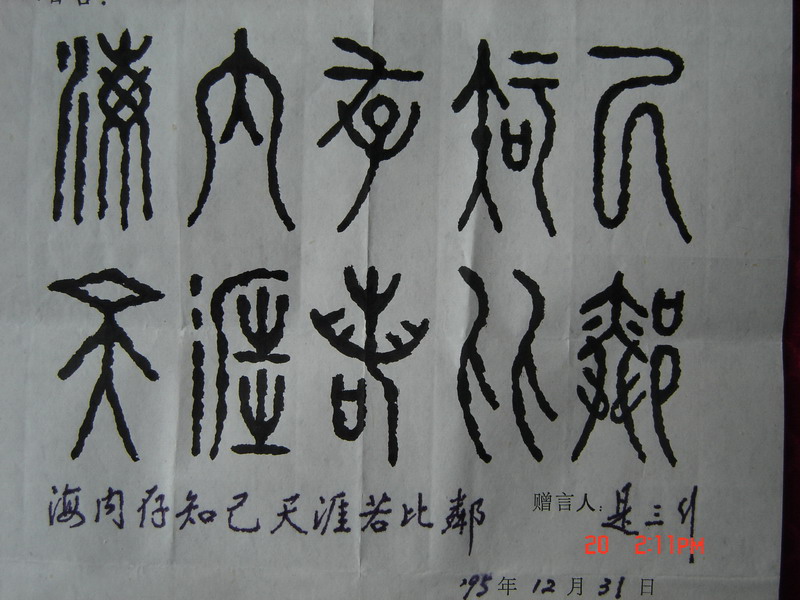 海内存知己
天涯若比鄰
海内存知己天涯若比鄰 赠言人:是三
20 2:11PM
'95年12月31日